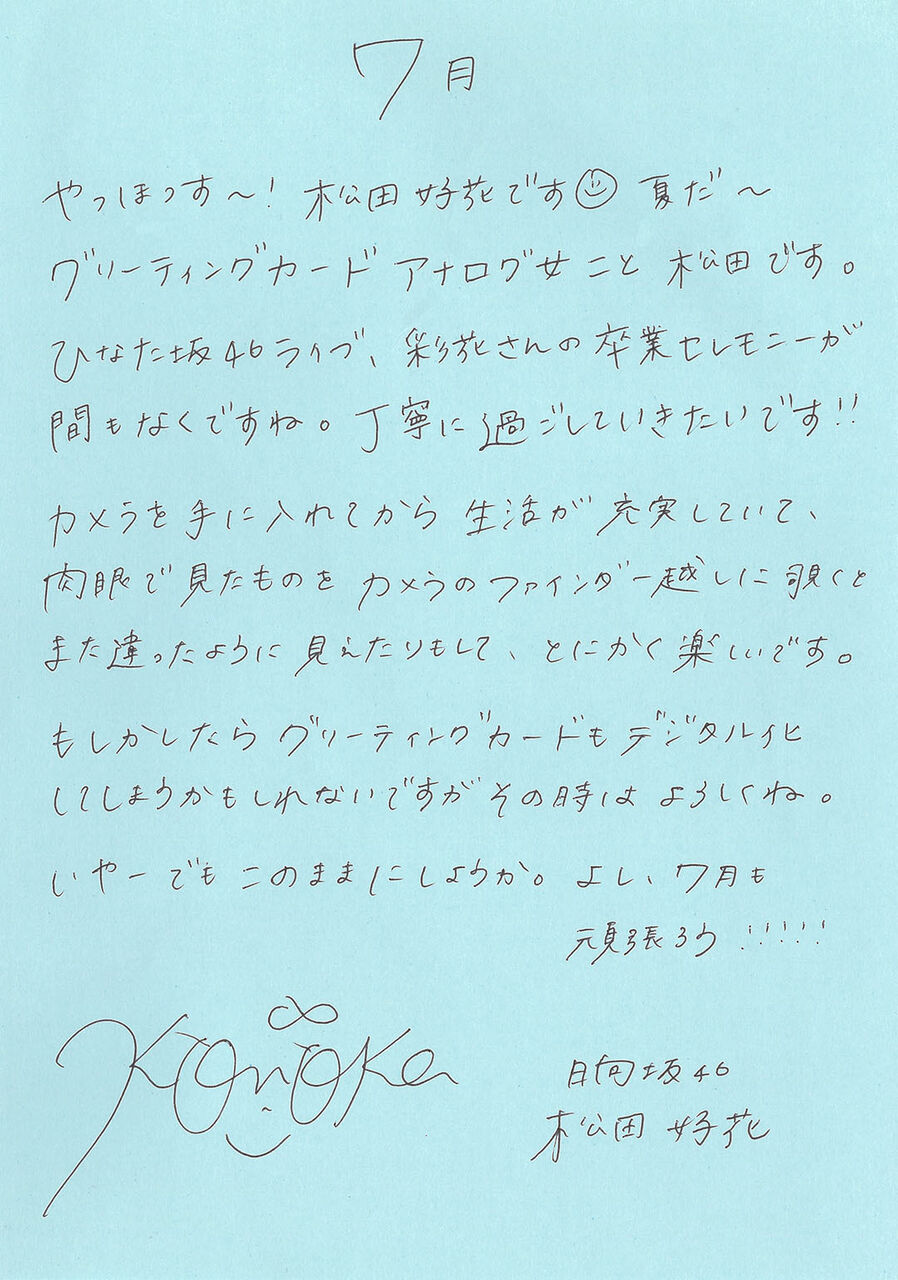 7月
やっほっす〜! 松田好花です☺ 夏だ〜
グリーティングカード アナログ女こと 松田です。
ひなた坂46ライブ、彩花さんの卒業セレモニーが
間もなくですね。丁寧に過ごしていきたいです!!
カメラを手に入れてから 生活が 充実していて、
肉眼で見たものを カメラのファインダー越しに 覗くと
また違ったように 見えたりもして、とにかく楽しいです。
もしかしたら グリーティングカードも デジタル化
してしまうかもしれないですが その時は よろしくね。
いやー でも このままにしようか。よし、7月も
頑張ろう !!!!!
Konoka
日向坂46
松田 好花